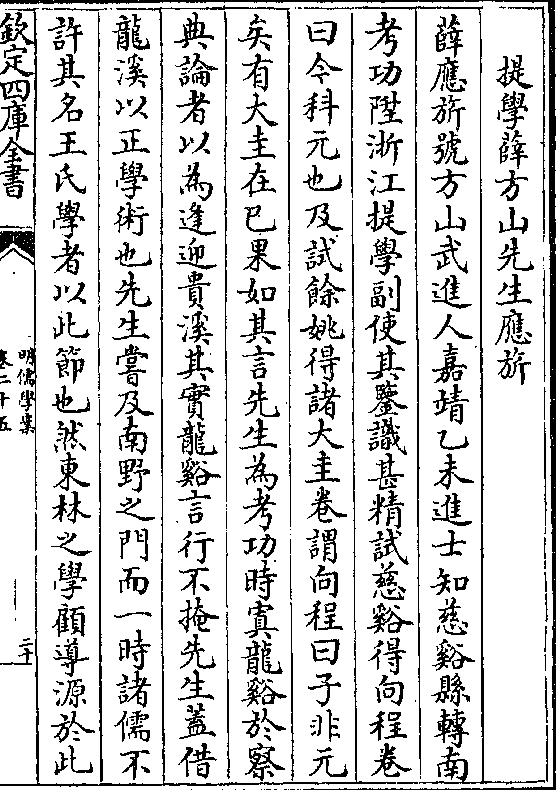 提學薛方山先生應旂
薛應旂號方山武進人嘉靖乙未進士知慈谿縣轉南
考功陞浙江提學副使其鑒識甚精試慈谿得向程卷
曰今科元也及試餘姚得諸大圭卷謂向程曰子非元
矣有大圭在已果如其言先生為考功時寘龍谿於察
典論者以為逢迎貴溪其實龍谿言行不掩先生蓋借
龍溪以正學術也先生嘗及南野之門而一時諸儒不
許其名王氏學者以此節也然東林之學顧導源於此
欽定四庫全書
明儒學案
卷二十五
二十